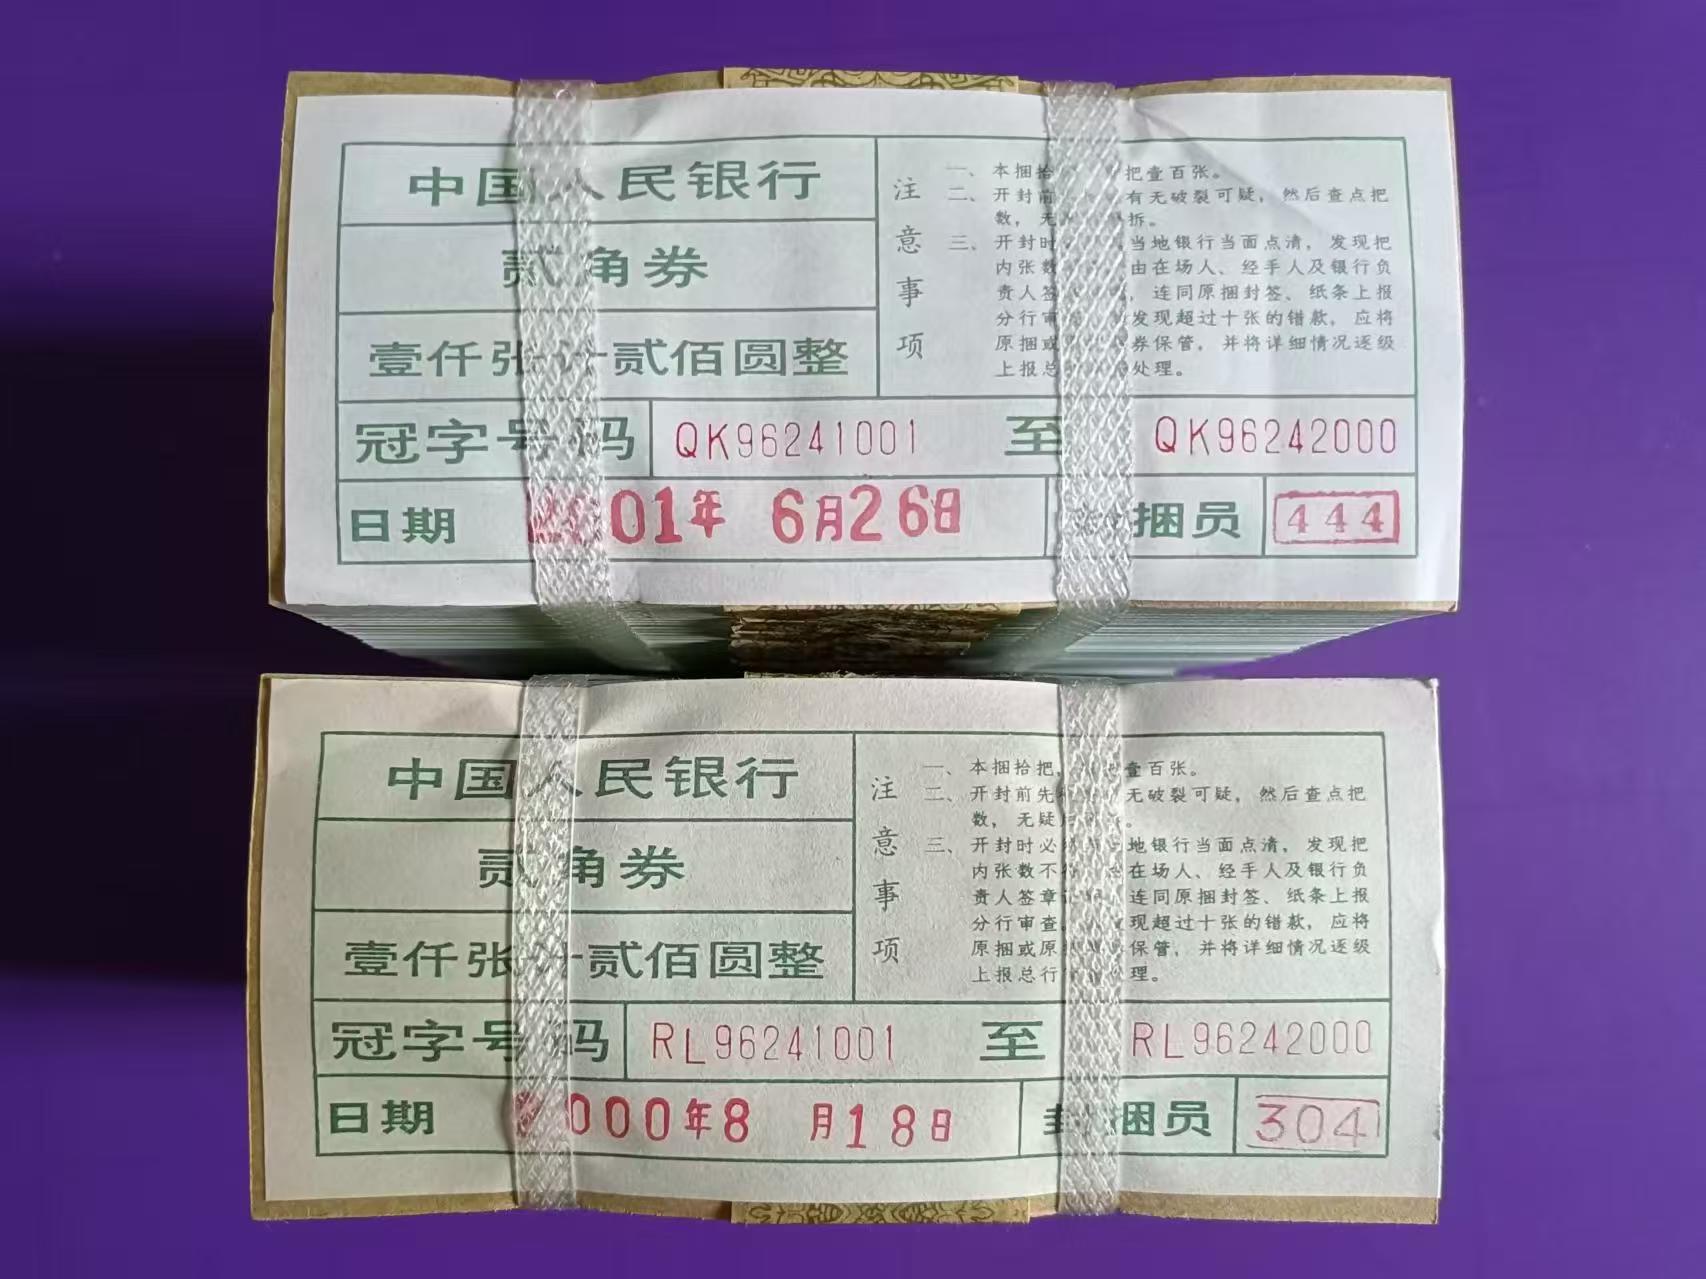 中国人民银行
贰角券
壹仟张计贰佰圆整
注意事项
一、本捆拾 把壹百张。
二、开封前 有无破裂可疑，然后查点把
数，无 拆。
三、开封时 当地银行当面点清，发现把
内张数 由在场人、经手人及银行负
责人签 ，连同原捆封签、纸条上报
分行审 发现超过十张的错款，应将
原捆或 券保管，并将详细情况逐级
上报总 处理。
冠字号码 QK96241001 至 QK96242000
日期 2001年 6月26日 封捆员 444
中国人民银行
贰角券
壹仟张计贰佰圆整
注意事项
一、本捆拾把， 壹百张。
二、开封前先 无破裂可疑，然后查点把
数，无疑 。
三、开封时必 地银行当面点清，发现把
内张数不 在场人、经手人及银行负
责人签章 连同原捆封签、纸条上报
分行审查 现超过十张的错款，应将
原捆或原 保管，并将详细情况逐级
上报总行 理。
冠字号码 RL96241001 至 RL96242000
日期 2000年8月18日 封捆员 304